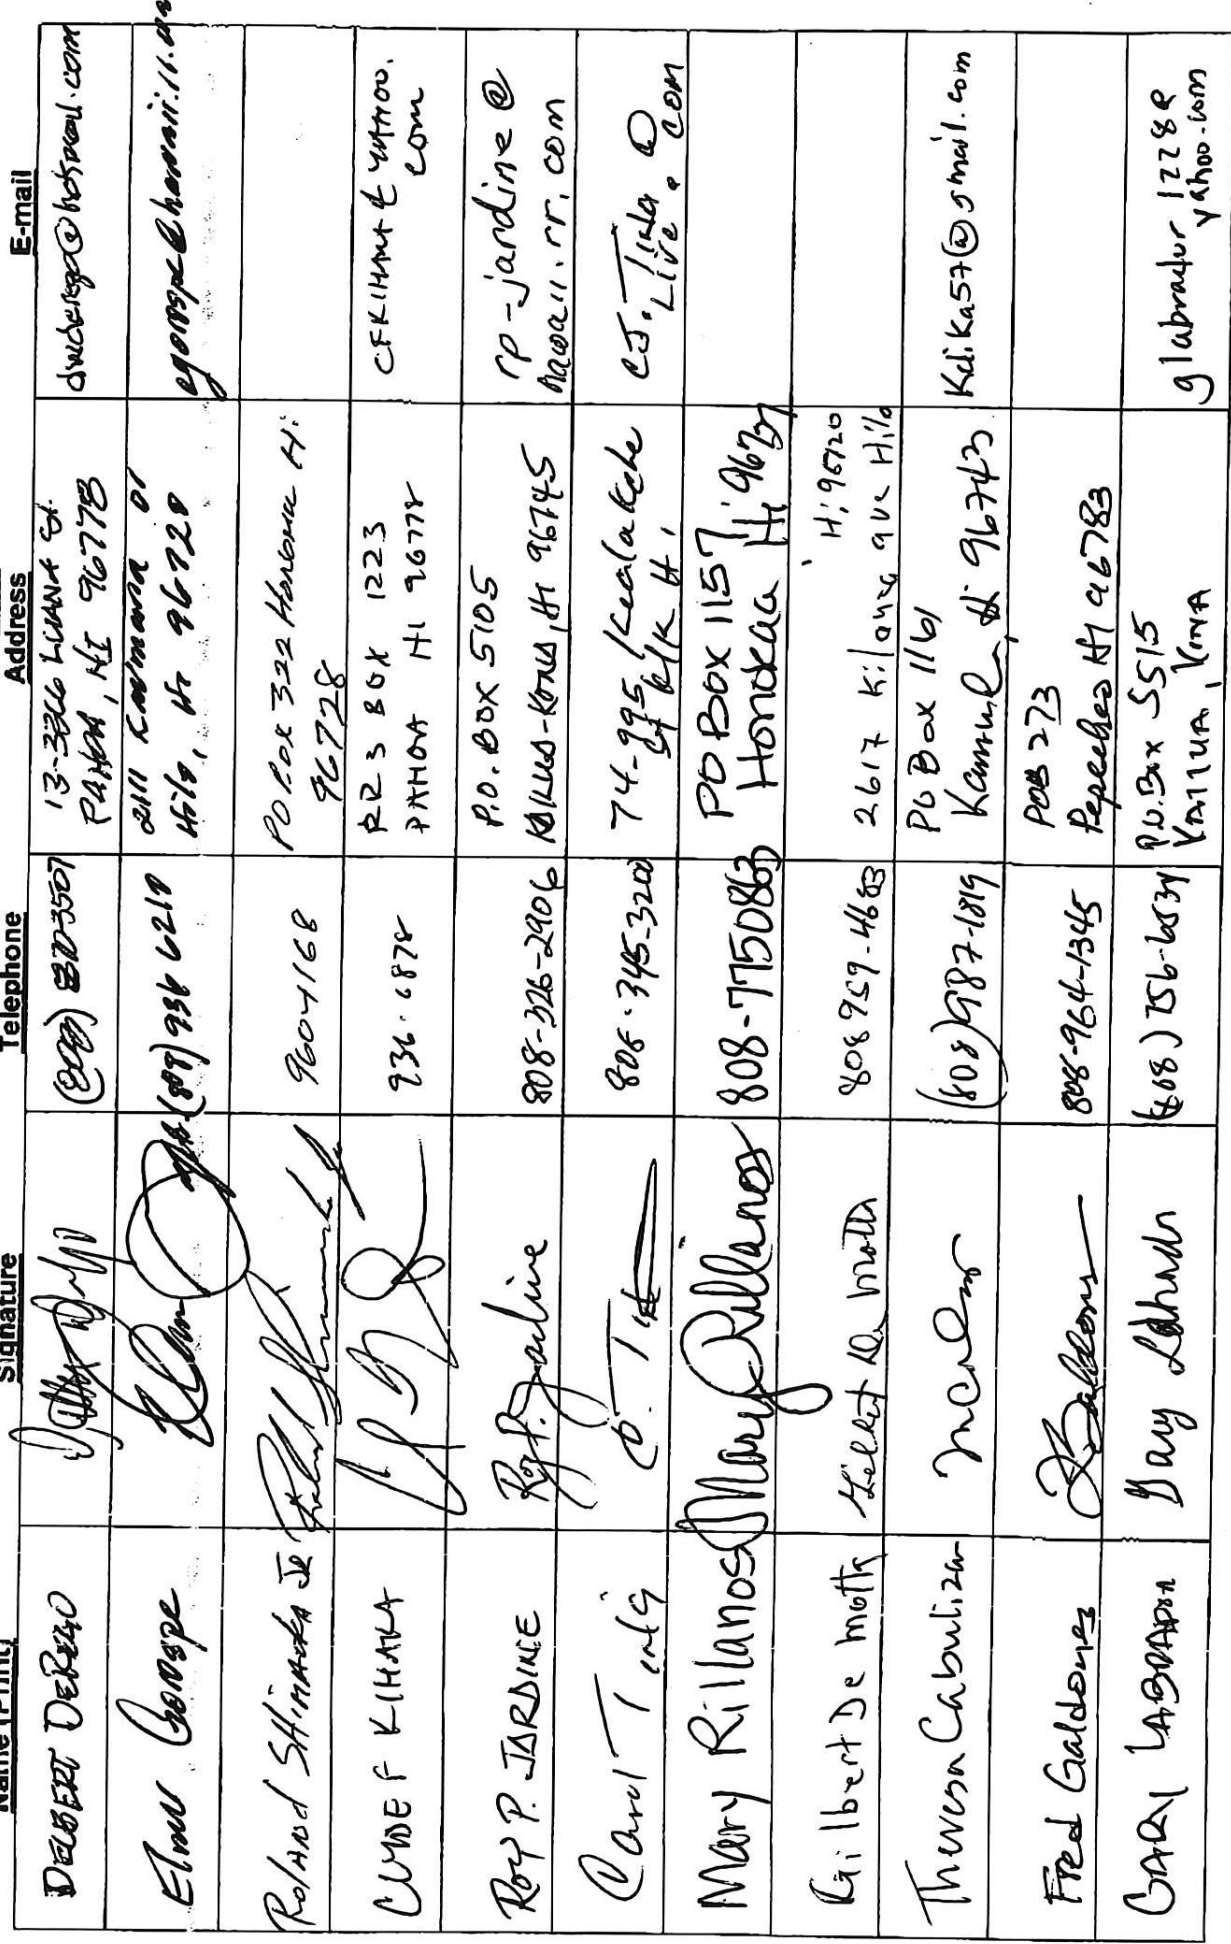 Name (Print) Signature Telephone Address E-mail
DELBERT DEREGO
13-3366 LUANA St.
PAHOA, HI 96778
Elmer Gorospe
(808) 936 6210
Hilo, Hi 96720
Roland SHIMAOKA JR
9604168
PO Box 322 Honomu Hi
96728
CLYDE F KIHARA
936-6878
RR 3 BOX 1223
PAHOA HI 96778
ROY P. JARDINE
Roy P. Jardine
808-326-2906
P.O. BOX 5105
KAILUA-KONA, HI 96745
rp-jardine@
hawaii.rr.com
Carol Tina
C. Tina
808-345-3200
74-995 Kealakehe
H,
Live. com
Mary Rillanos
Mary Rillanos
808-7750863
PO Box 1157
Honokaa Hi 96727
Gilbert De Motta
Gilbert De Motta
808 959-4683
Hi, 96720
2617 Kilauea ave Hilo
Theresa Cabulizan
(808) 987-1819
PO Box 1161
Kamuela, Hi 96743
Kelika57@gmail.com
Fred Galdones
808-964-1345
POB 273
Pepeekeo HI 96783
GARY LABRADOR
Gary Labrador
P.O. Box 5515
KAILUA, KONA
glabrador1228@
yahoo.com